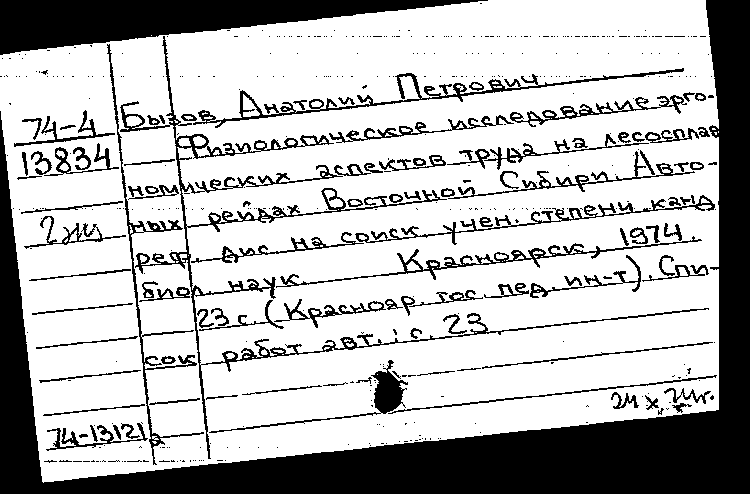 74-4
13834
2жш
Бызов, Анатолий Петрович
Физиологическое исследование эрго-
номических аспектов труда на лесосплав
ных рейдах Восточной Сибири. Авто-
реф. дис. на соиск. учен. степени канд.
биол. наук. Красноярск, 1974.
23 с. (Краснояр. гос. пед. ин-т). Спи-
сок работ авт.: с. 23.
74-13121